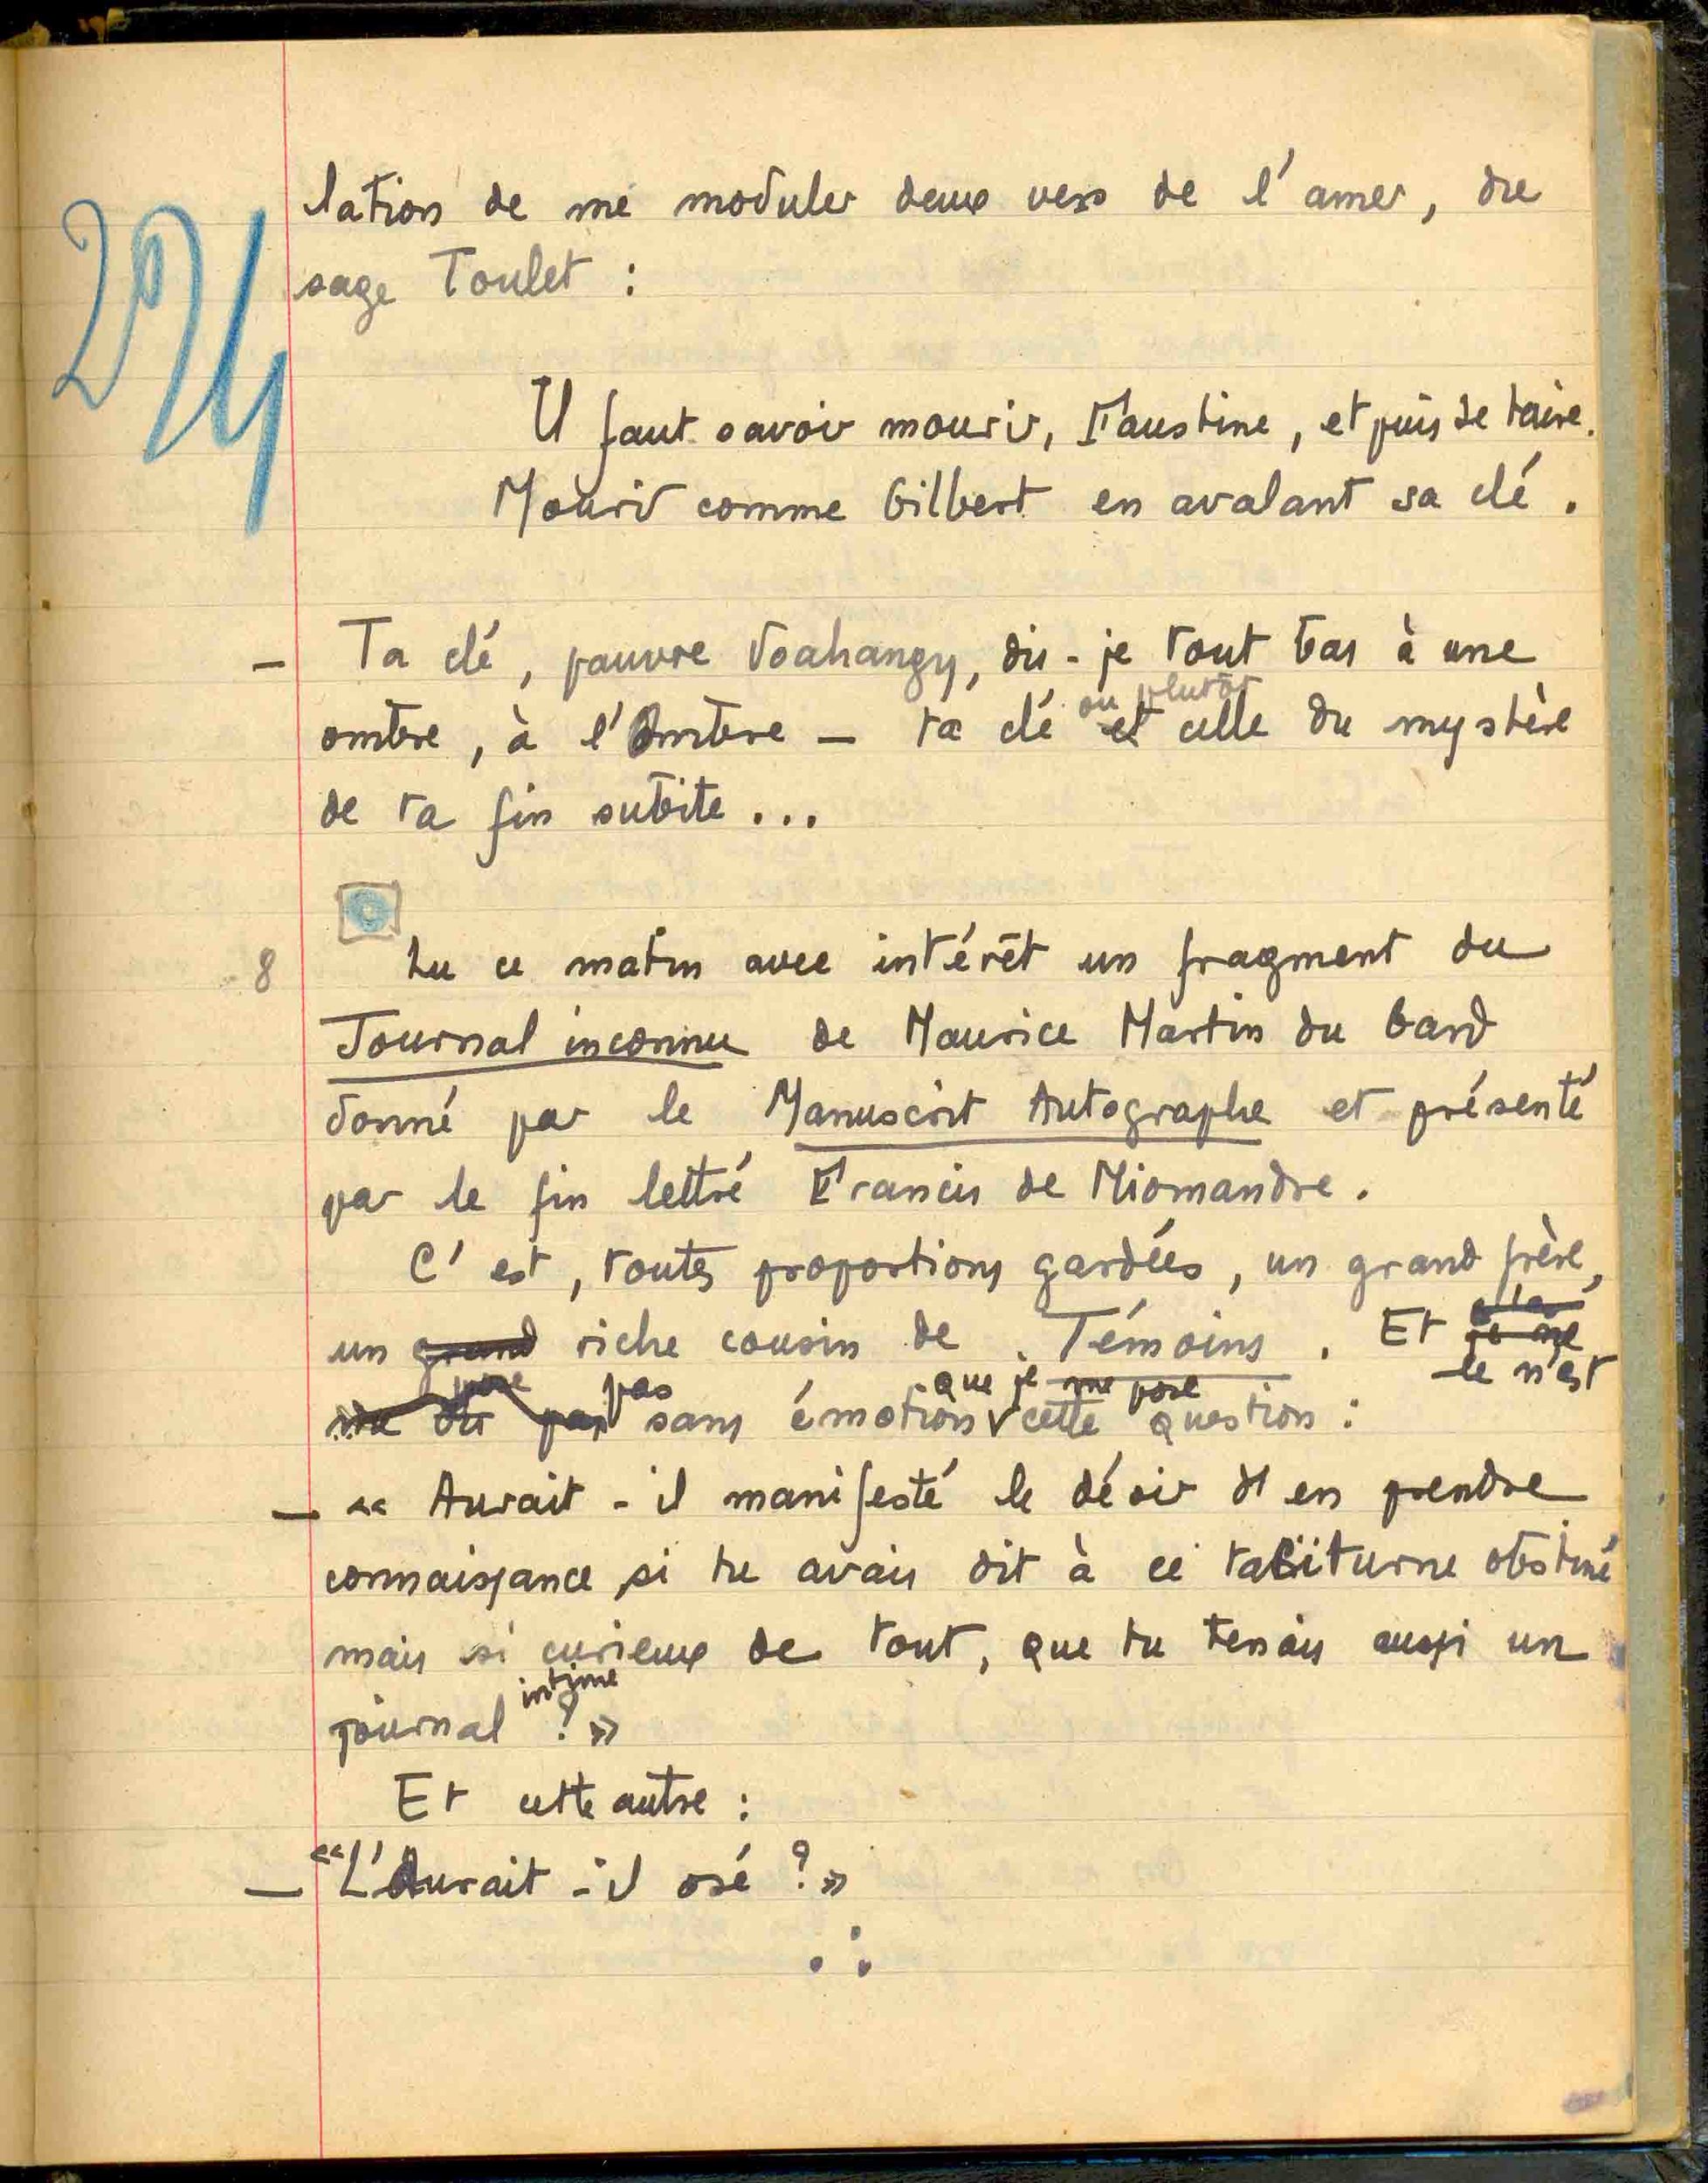 294
lation de me moduler deux vers de l'amer, du
sage Toulet :
Il faut savoir mourir, Faustine, et puis se taire.
Mourir comme Gilbert en avalant sa clé.
— Ta clé, pauvre Voahangy, dis-je tout bas à une
ombre, à l'Ombre — ta clé et ou plutôt celle du mystère
de ta fin subite...
8 Lu ce matin avec intérêt un fragment du
Journal inconnu de Maurice Martin du Gard
donné par le Manuscrit Autographe et présenté
par le fin lettré Francis de Miomandre.
C'est, toutes proportions gardées, un grand frère,
un grand riche cousin de Témoins. Et je ne ce n'est
pas sans émotion que je me pose cette question :
— « Aurait-il manifesté le désir d'en prendre
connaissance si tu avais dit à ce taciturne obstiné
mais si curieux de tout, que tu tenais aussi un
journal intime ? »
Et cette autre :
— « L'Aurait-il osé ? »